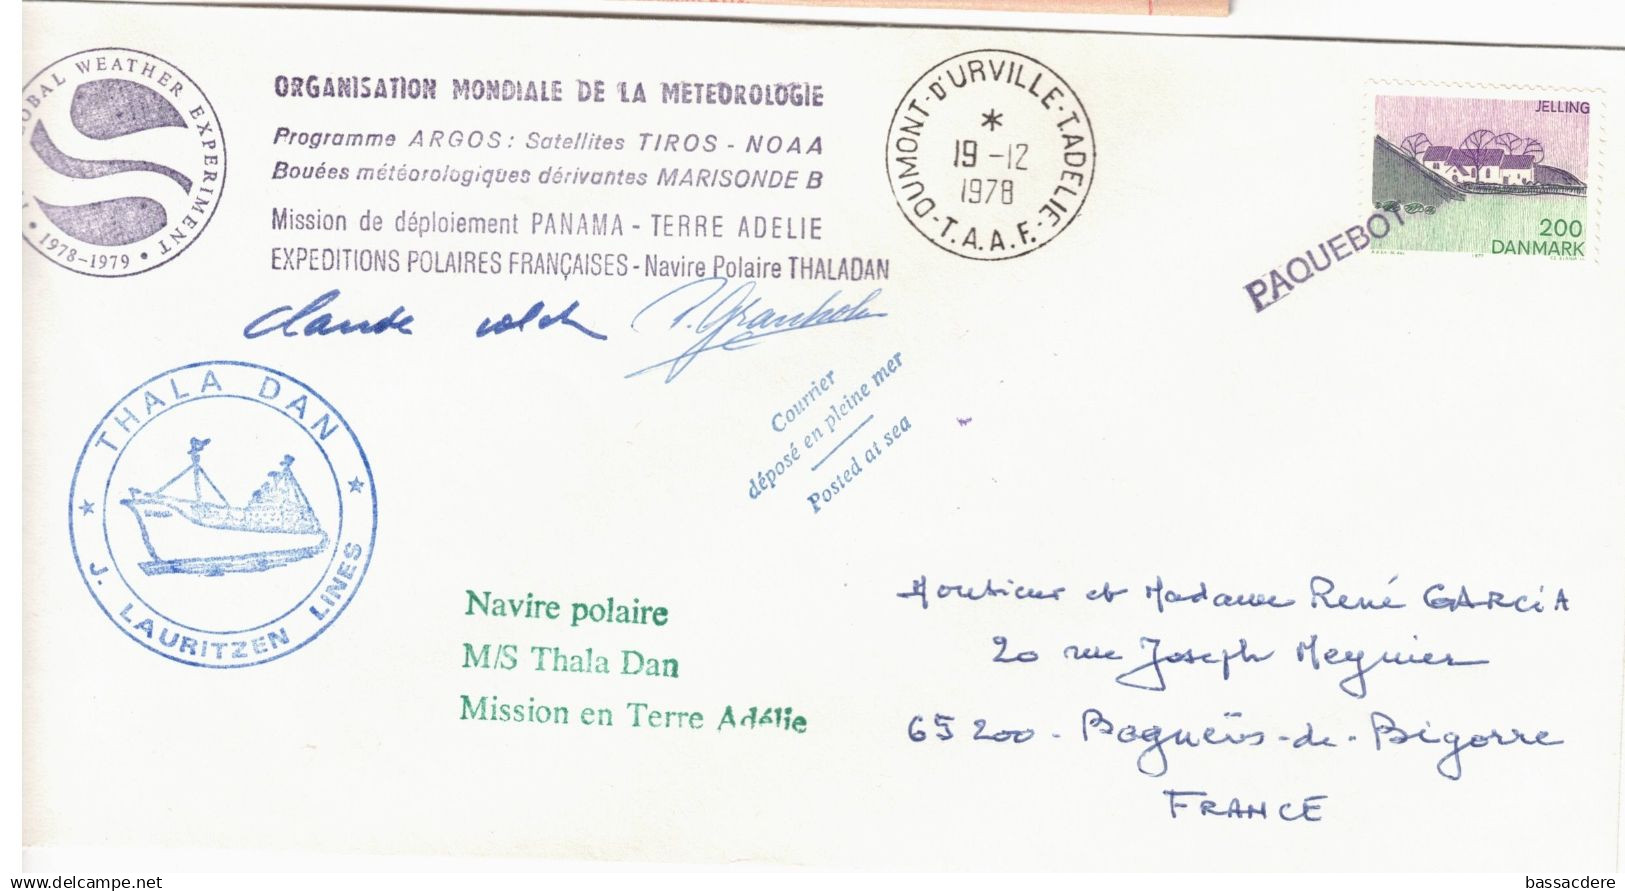 GLOBAL WEATHER EXPERIMENT
• 1978-1979 •
ORGANISATION MONDIALE DE LA METEOROLOGIE
Programme ARGOS: Satellites TIROS - NOAA
Bouées météorologiques dérivantes MARISONDE B
Mission de déploiement PANAMA - TERRE ADELIE
EXPEDITIONS POLAIRES FRANÇAISES - Navire Polaire THALADAN
DUMONT-D'URVILLE-T.ADELIE-
-T.A.A.F.-
*
19-12
1978
JELLING
200
DANMARK
PAQUEBOT
Claude
Courrier
déposé en pleine mer
Posted at sea
★ THALA DAN ★
J. LAURITZEN LINES
Navire polaire
M/S Thala Dan
Mission en Terre Adélie
Monsieur et Madame René GARCiA
20 rue Joseph Meynier
65200 - Bagnères-de-Bigorre
FRANCE
bassacdere